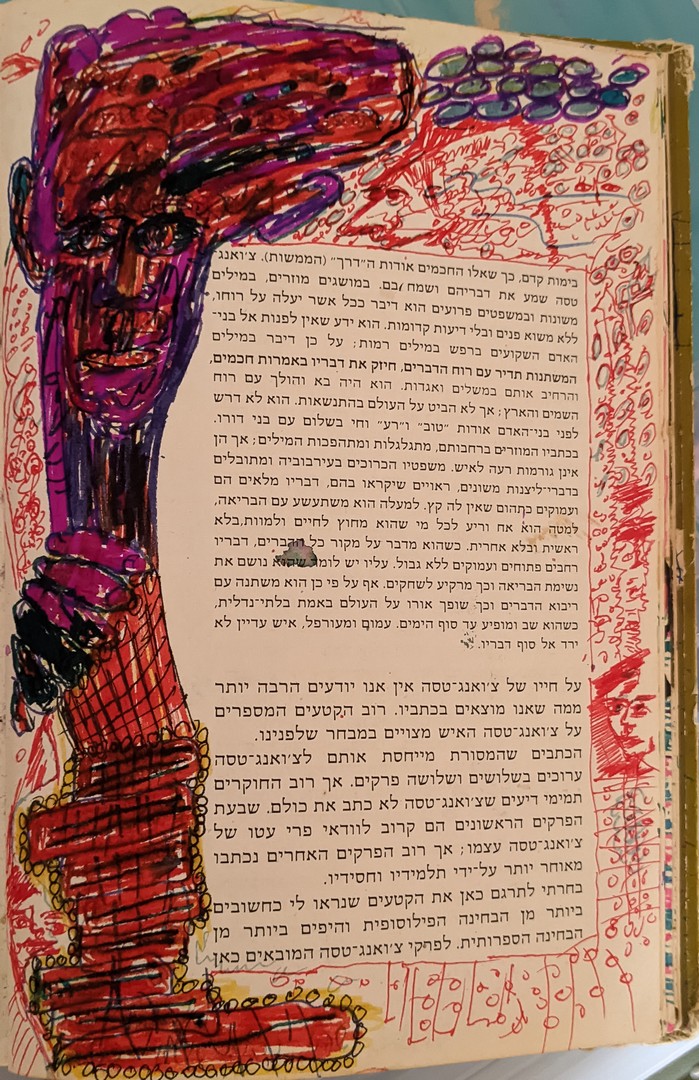 בימות קדם, כך שאלו החכמים אודות ה״דרך״ (הממשות). צ׳ואנג־
טסה שמע את דבריהם ושמח בם. במושגים מוזרים, במילים
משונות ובמשפטים פרועים הוא דיבר ככל אשר יעלה על רוחו,
ללא משוא פנים ובלי דיעות קדומות. הוא ידע שאין לפנות אל בני־
האדם השקועים ברפש במילים רמות; על כן דיבר במילים
המשתנות תדיר עם רוח הדברים, חיזק את דבריו באמרות חכמים,
והרחיב אותם במשלים ואגדות. הוא היה בא והולך עם רוח
השמים והארץ; אך לא הביט על העולם בהתנשאות. הוא לא דרש
לפני בני־האדם אודות ״טוב״ ו״רע״ וחי בשלום עם בני דורו.
בכתביו המוזרים ברחבותם, מתגלגלות ומתהפכות המילים; אך הן
אינן גורמות רעה לאיש. משפטיו הכרוכים בעירבוביה ומתובלים
בדברי־ליצנות משונים, ראויים שיקראו בהם, דבריו מלאים הם
ועמוקים כתהום שאין לה קץ. למעלה הוא משתעשע עם הבריאה,
למטה הוא אח וריע לכל מי שהוא מחוץ לחיים ולמוות, בלא
ראשית ובלא אחרית. כשהוא מדבר על מקור כל הדברים, דבריו
רחבים פתוחים ועמוקים ללא גבול. עליו יש לומר שהוא נושם את
נשימת הבריאה וכך מרקיע לשחקים. אף על פי כן הוא משתנה עם
ריבוא הדברים וכך שופך אורו על העולם באמת בלתי־נדלית,
כשהוא שב ומופיע עד סוף הימים. עמום ומעורפל, איש עדיין לא
ירד אל סוף דבריו.
על חייו של צ׳ואנג־טסה אין אנו יודעים הרבה יותר
ממה שאנו מוצאים בכתביו. רוב הקטעים המספרים
על צ׳ואנג־טסה האיש מצויים במבחר שלפנינו.
הכתבים שהמסורת מייחסת אותם לצ׳ואנג־טסה
ערוכים בשלושים ושלושה פרקים. אך רוב החוקרים
תמימי דיעים שצ׳ואנג־טסה לא כתב את כולם. שבעת
הפרקים הראשונים הם קרוב לוודאי פרי עטו של
צ׳ואנג־טסה עצמו; אך רוב הפרקים האחרים נכתבו
מאוחר יותר על־ידי תלמידיו וחסידיו.
בחרתי לתרגם כאן את הקטעים שנראו לי כחשובים
ביותר מן הבחינה הפילוסופית והיפים ביותר מן
הבחינה הספרותית. לפרקי צ׳ואנג־טסה המובאים כאן